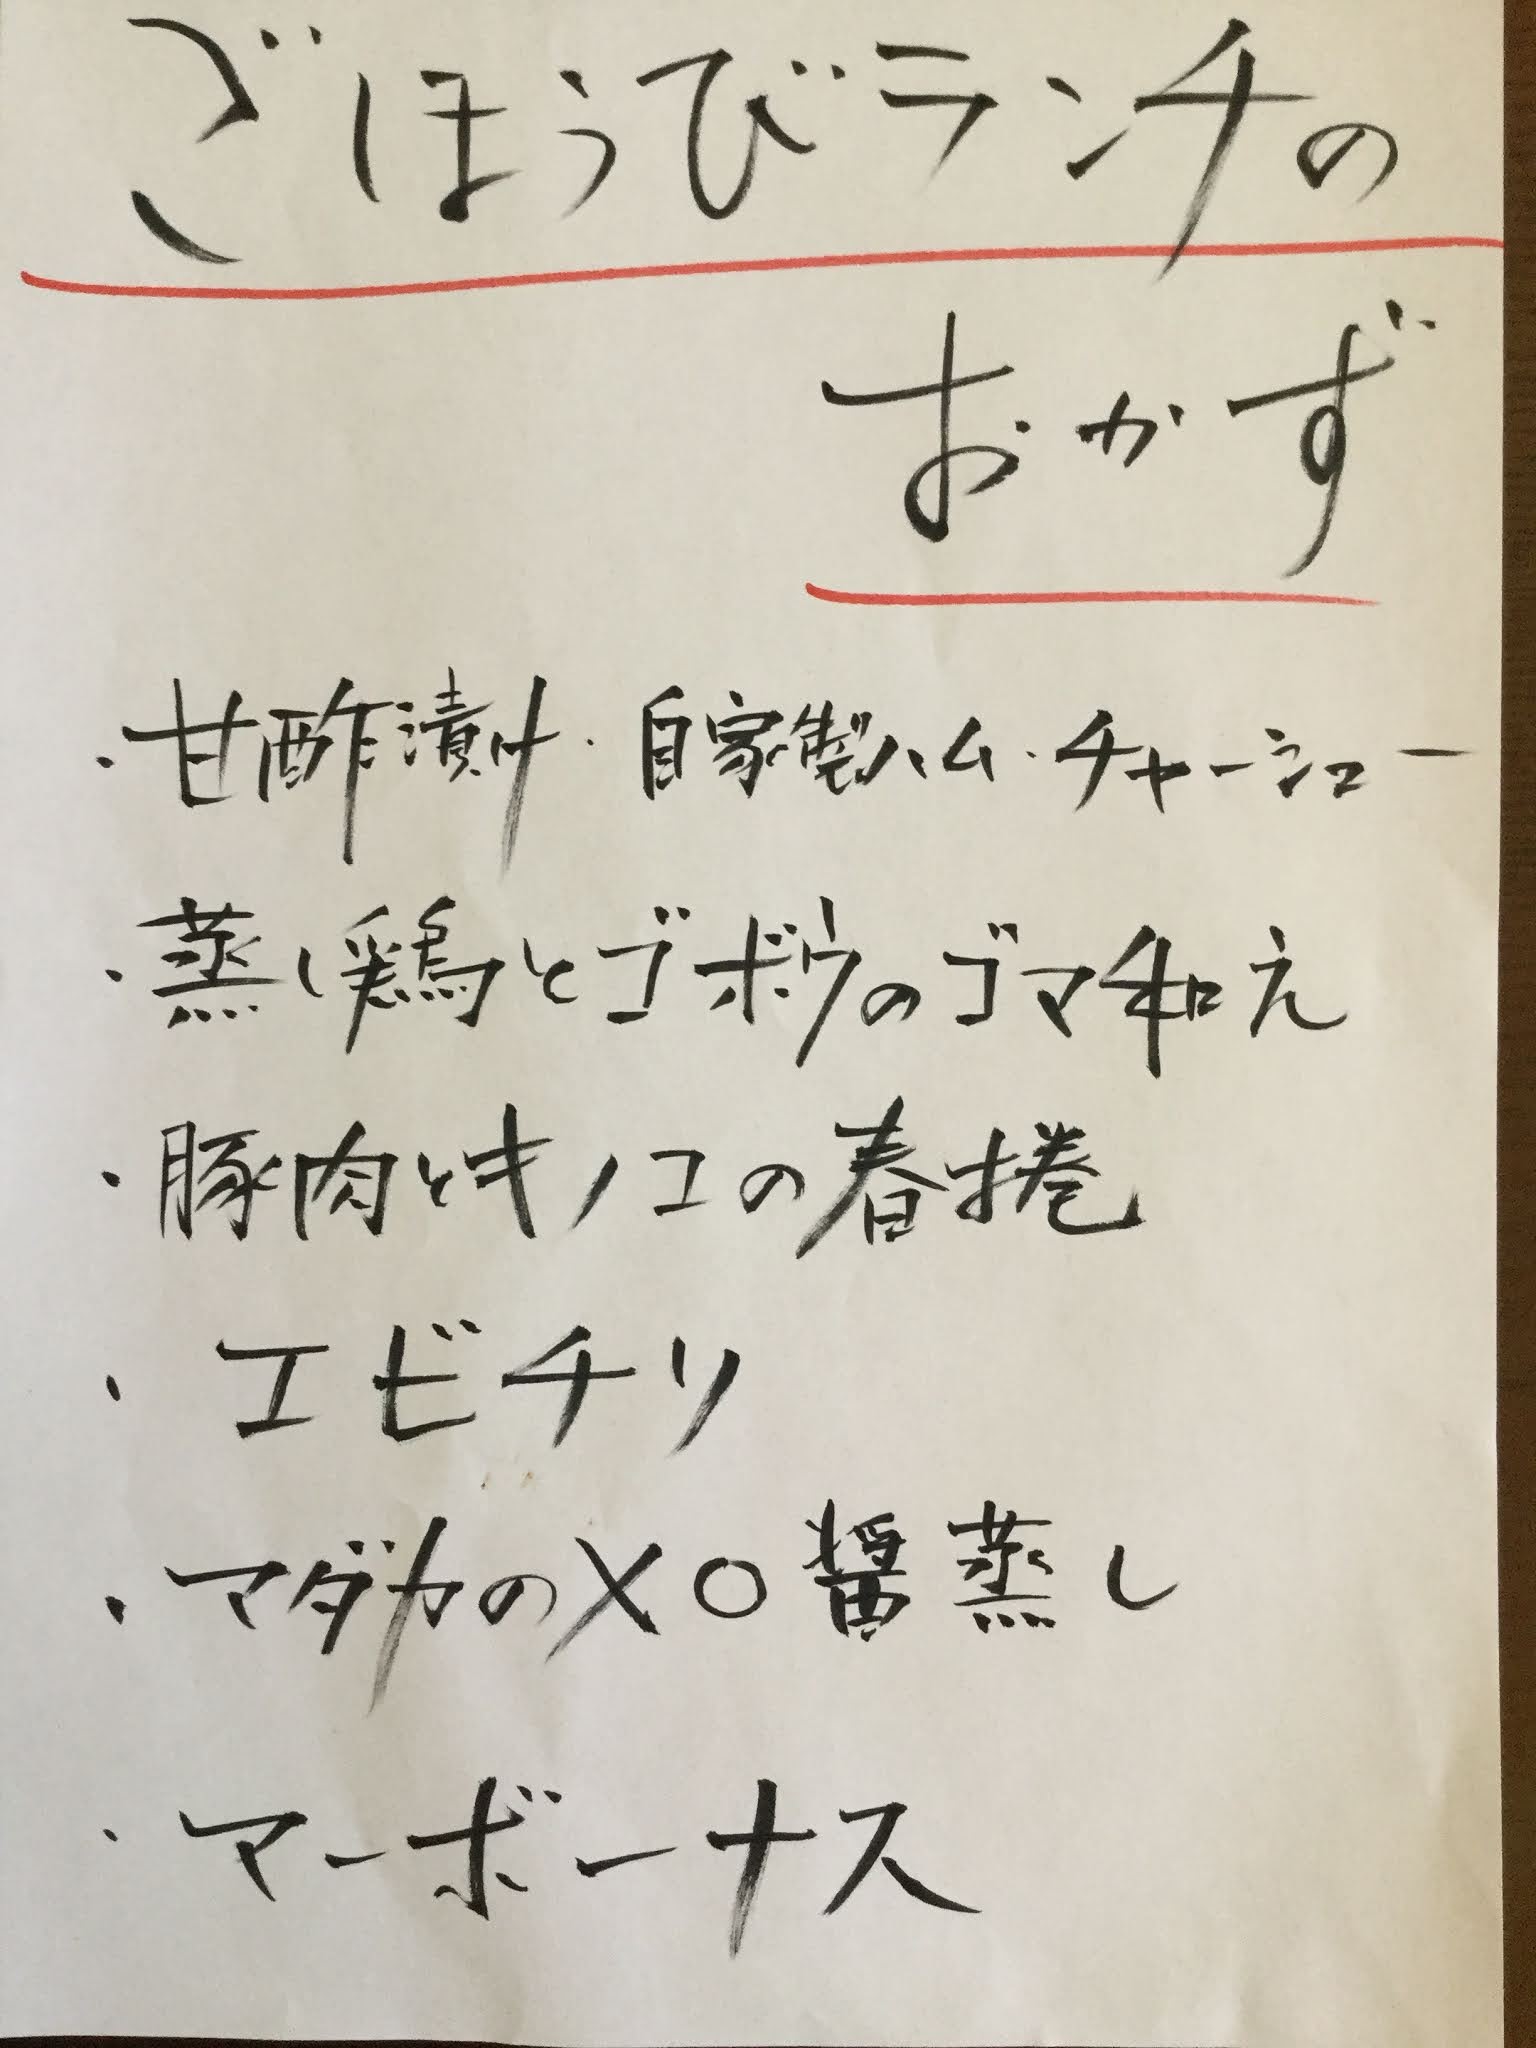 ごほうびランチの
おかず
・甘酢漬け・自家製ハム・チャーシュー
・蒸し鶏とゴボウのゴマ和え
・豚肉とキノコの春捲
・エビチリ
・マダカのXO醤蒸し
・マーボーナス